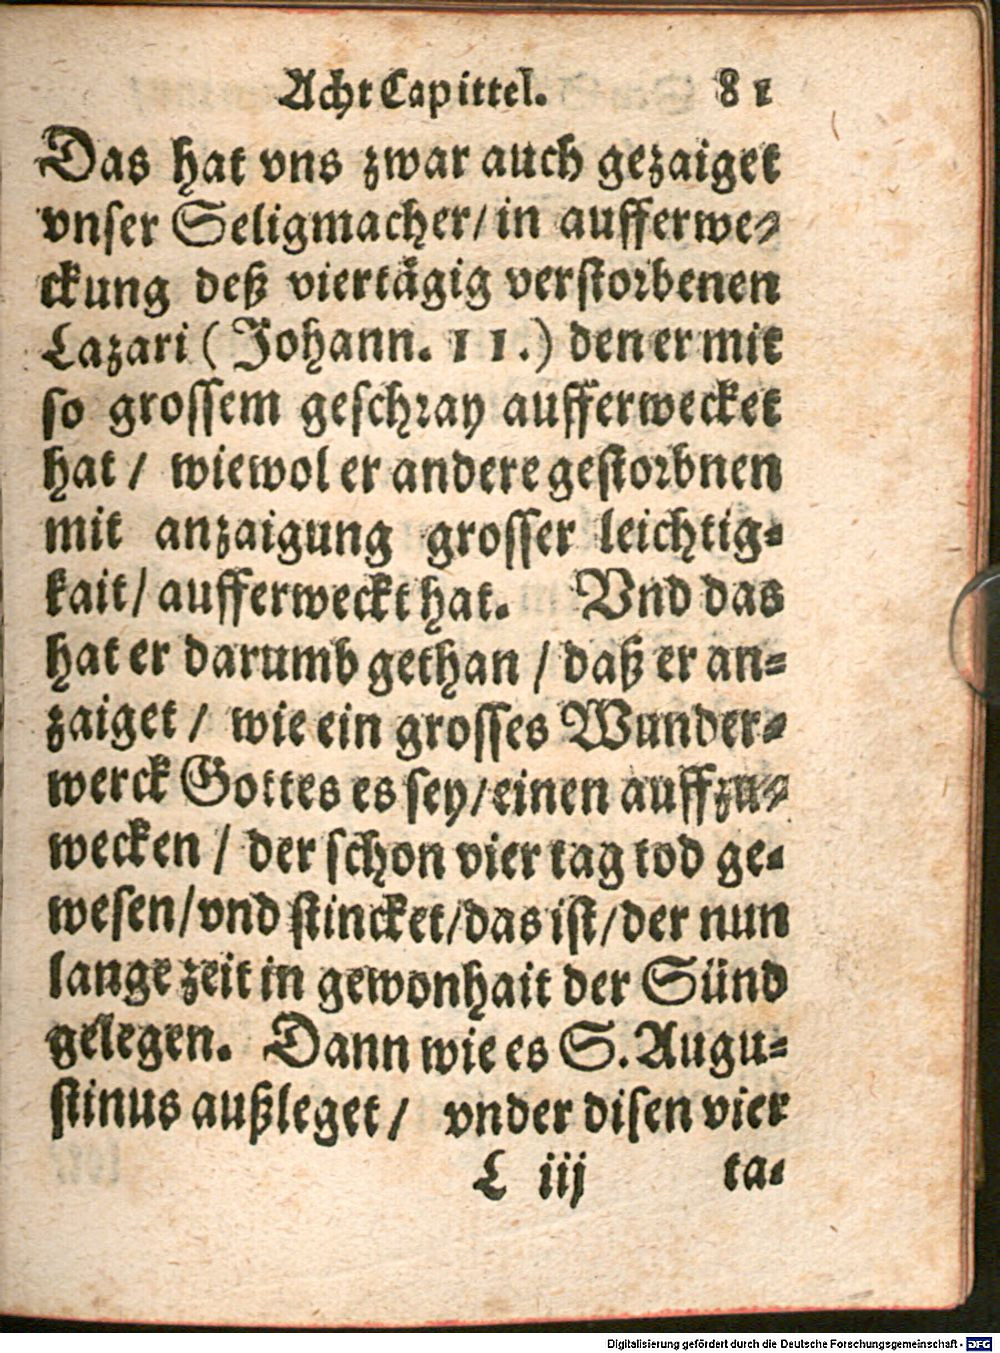 Acht Capittel. 81
Das hat vns zwar auch gezaiget
vnser Seligmacher/ in aufferwe⸗
ckung deß viertägig verstorbenen
Lazari (Johann. 11.) den er mit
so grossem geschray aufferwecket
hat / wiewol er andere gestorbnen
mit anzaigung grosser leichtig⸗
kait/ aufferweckt hat. Vnd das
hat er darumb gethan / daß er an⸗
zaiget / wie ein grosses Wunder⸗
werck Gottes es sey/ einen auffzu⸗
wecken / der schon vier tag tod ge⸗
wesen/ vnd stincket/ das ist/ der nun
lange zeit in gewonhait der Sünd
gelegen. Dann wie es S. Augu⸗
stinus außleget / vnder disen vier
L iij ta⸗
Digitalisierung gefördert durch die Deutsche Forschungsgemeinschaft - DFG